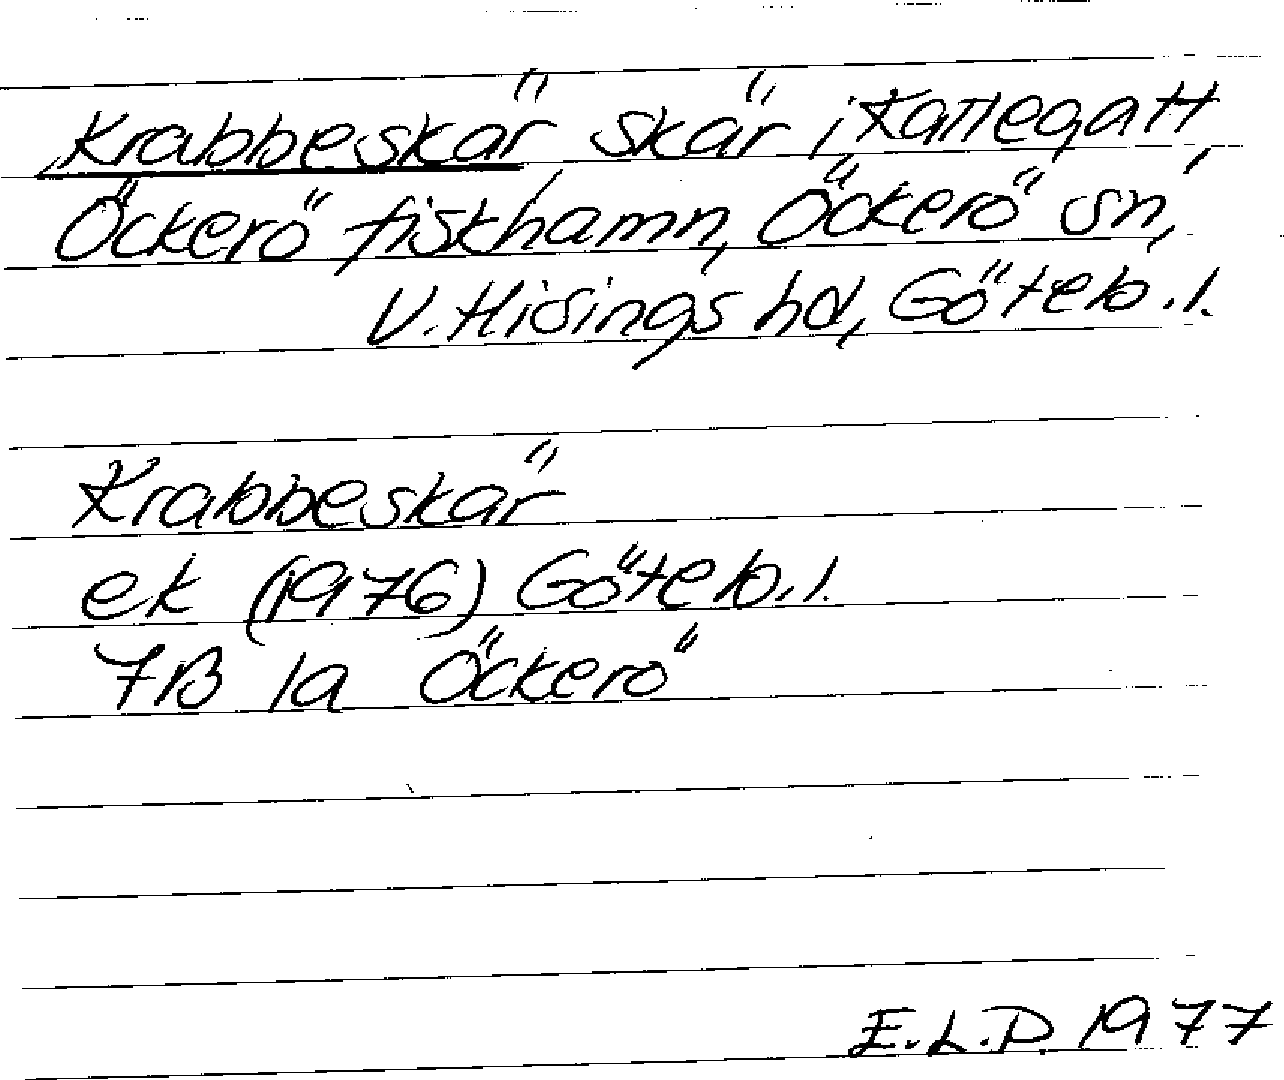 Krabbeskär skär i Kattegatt,
Öckerö fiskhamn, Öckerö sn,
V. Hisings hd, Göteb. l.
Krabbeskär
ek (1976) Göteb. l.
7B 1a Öckerö
E.L.P. 1977